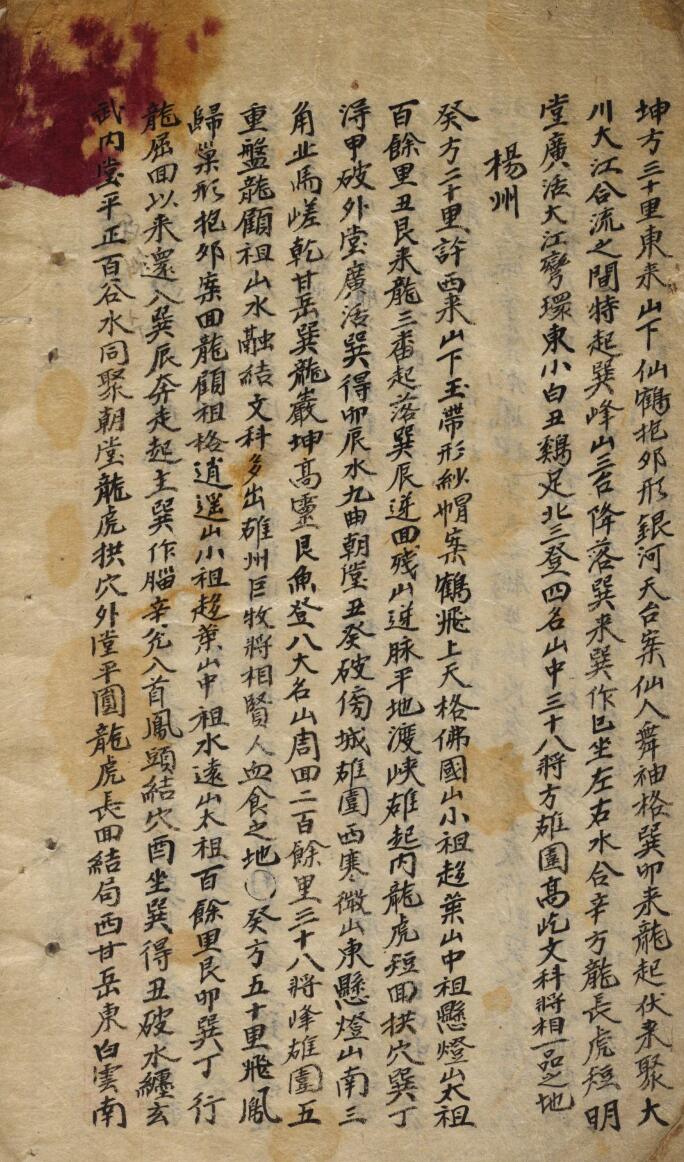 坤方三十里東来山下仙鶴抱卵形銀河天台案仙人舞袖格巽卯来龍起伏来聚大
川大江合流之間特起巽峰山三台降落巽来巽作巳坐左右水合辛方龍長虎短明
堂廣活大江彎環東小白丑鷄足北三登四名山中三十八將方雄圍高屹文科將相一品之地
楊州
癸方二十里許西来山下玉帶形紗帽案鶴飛上天格佛國山小祖趍葉山中祖懸燈山太祖
百餘里丑艮来龍三番起落巽辰逆回殘山逆脉平地渡峽雄起内龍虎短回拱穴巽丁
淂甲破外堂廣活巽得卯辰水九曲朝堂丑癸破傍城雄圍西寒微山東懸燈山南三
角北嵯乾甘岳巽龍巖坤高靈艮魚登八大名山周回二百餘里三十八將峰雄圍五
重盤龍顧祖山水融結文科多出雄州巨牧將相賢人血食之地〇癸方五十里飛鳳
歸巢形抱卵案回龍顧祖格逍遥山小祖趍葉山中祖水遠山太祖百餘里艮卯巽丁行
龍屈曲以来還入巽辰奔走起主巽作腦辛兊入首鳳頭結穴酉坐巽得丑破水纏玄
武内堂平正百谷水同聚朝堂龍虎拱穴外堂平圓龍虎長回結局西甘岳東白雲南